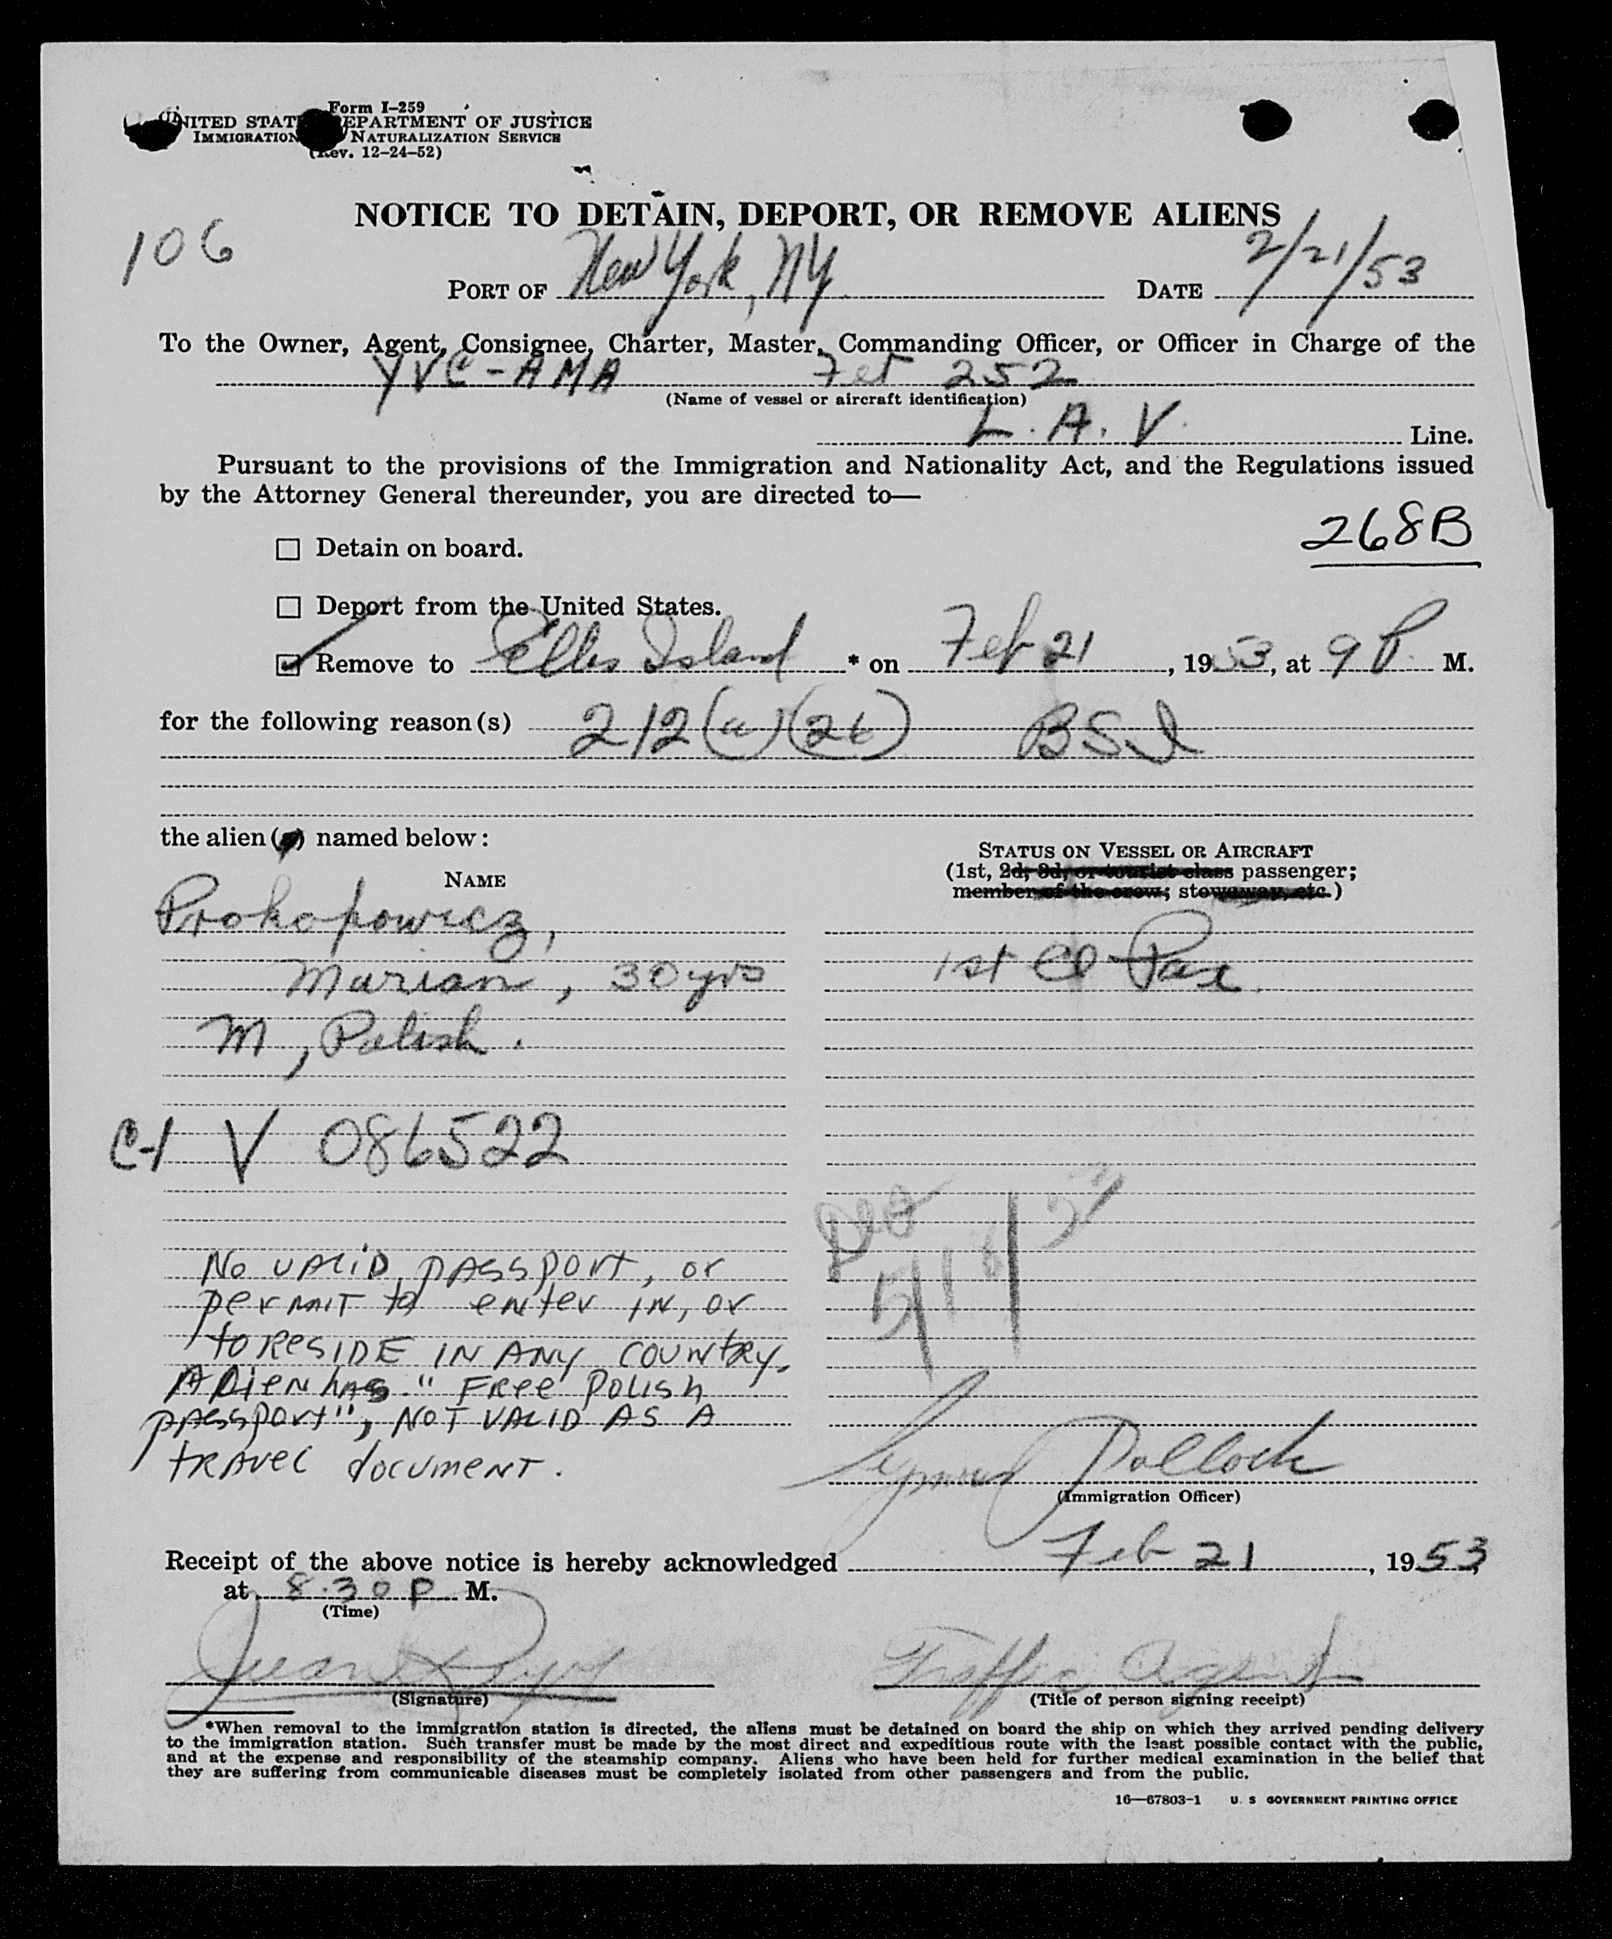 Form I-259
UNITED STAT DEPARTMENT OF JUSTICE
IMMIGRATION NATURALIZATION SERVICE
(Rev. 12-24-52)
NOTICE TO DETAIN, DEPORT, OR REMOVE ALIENS
106
PORT OF New York, NY DATE 2/21/53
To the Owner, Agent, Consignee, Charter, Master, Commanding Officer, or Officer in Charge of the
YVC-AMA 252
(Name of vessel or aircraft identification)
L. A. V. Line.
Pursuant to the provisions of the Immigration and Nationality Act, and the Regulations issued
by the Attorney General thereunder, you are directed to—
268B
☐ Detain on board.
☐ Deport from the United States.
☑ Remove to Ellis Island * on Feb 21, 1953, at 9 P. M.
for the following reason(s) 212(a)(26) BSI
the alien( ) named below:
STATUS ON VESSEL OR AIRCRAFT
(1st, 2d, 3d, or tourist class passenger;
member of the crew; stowaway, etc.)
NAME
Prokopowicz,
Marian, 30 yrs
1st Cl Pax.
M, Polish.
C-1 V 086522
No VALID passport, or
permit to enter in, or
to RESIDE IN ANY COUNTRY.
Alien has "Free Polish
passport", NOT VALID AS A
travel document.
5/18/53
Pollock
(Immigration Officer)
Receipt of the above notice is hereby acknowledged Feb 21, 1953,
at 8:30 P M.
(Time)
Juan
Traffic Agent
(Signature)
(Title of person signing receipt)
*When removal to the immigration station is directed, the aliens must be detained on board the ship on which they arrived pending delivery
to the immigration station. Such transfer must be made by the most direct and expeditious route with the least possible contact with the public,
and at the expense and responsibility of the steamship company. Aliens who have been held for further medical examination in the belief that
they are suffering from communicable diseases must be completely isolated from other passengers and from the public.
16—67803-1 U. S GOVERNMENT PRINTING OFFICE